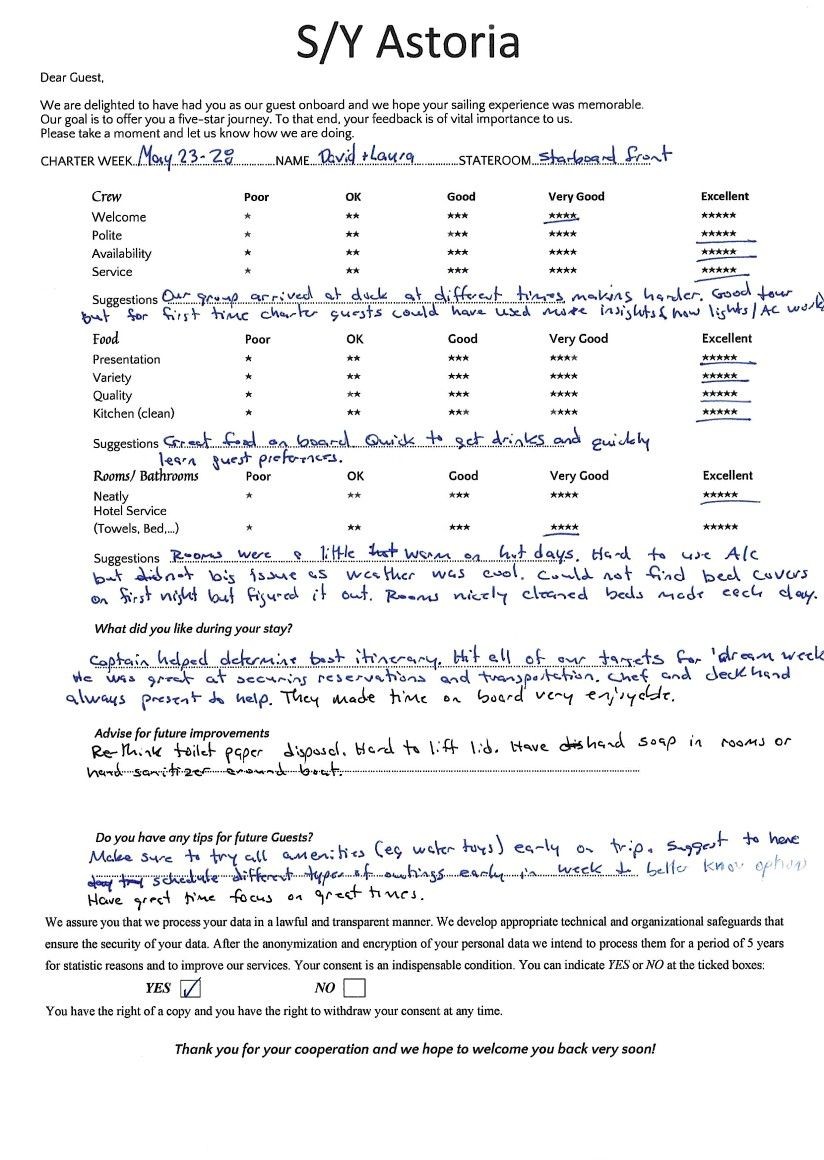 S/Y Astoria
Dear Guest,
We are delighted to have had you as our guest onboard and we hope your sailing experience was memorable.
Our goal is to offer you a five-star journey. To that end, your feedback is of vital importance to us.
Please take a moment and let us know how we are doing.
CHARTER WEEK May 23-28 NAME David + Laura STATEROOM Starboard front
Crew Poor OK Good Very Good Excellent
Welcome * ** *** **** *****
Polite * ** *** **** *****
Availability * ** *** **** *****
Service * ** *** **** *****
Suggestions Our group arrived at dock at different times making harder. Good tour
but for first time charter guests could have used more insights how lights/AC work
Food Poor OK Good Very Good Excellent
Presentation * ** *** **** *****
Variety * ** *** **** *****
Quality * ** *** **** *****
Kitchen (clean) * ** *** **** *****
Suggestions Great food on board. Quick to get drinks and quickly
learn guest preferences.
Rooms/ Bathrooms Poor OK Good Very Good Excellent
Neatly * ** *** **** *****
Hotel Service
(Towels, Bed,...) * ** *** **** *****
Suggestions Rooms were a little warm on hot days. Hard to use A/C
but not big issue as weather was cool. Could not find bed covers
on first night but figured it out. Rooms nicely cleaned beds made each day.
What did you like during your stay?
Captain helped determine best itinerary. Hit all of our targets for 'dream week
He was great at securing reservations and transportation. Chef and deckhand
always present to help. They made time on board very enjoyable.
Advise for future improvements
Re-think toilet paper disposal. Hard to lift lid. Have hand soap in rooms or
hand sanitizer around boat.
Do you have any tips for future Guests?
Make sure to try all amenities (eg water toys) early on trip. Suggest to have
schedule different types of outings early in week to better know options
Have great time focus on great times.
We assure you that we process your data in a lawful and transparent manner. We develop appropriate technical and organizational safeguards that
ensure the security of your data. After the anonymization and encryption of your personal data we intend to process them for a period of 5 years
for statistic reasons and to improve our services. Your consent is an indispensable condition. You can indicate YES or NO at the ticked boxes:
YES ✓ NO
You have the right of a copy and you have the right to withdraw your consent at any time.
Thank you for your cooperation and we hope to welcome you back very soon!